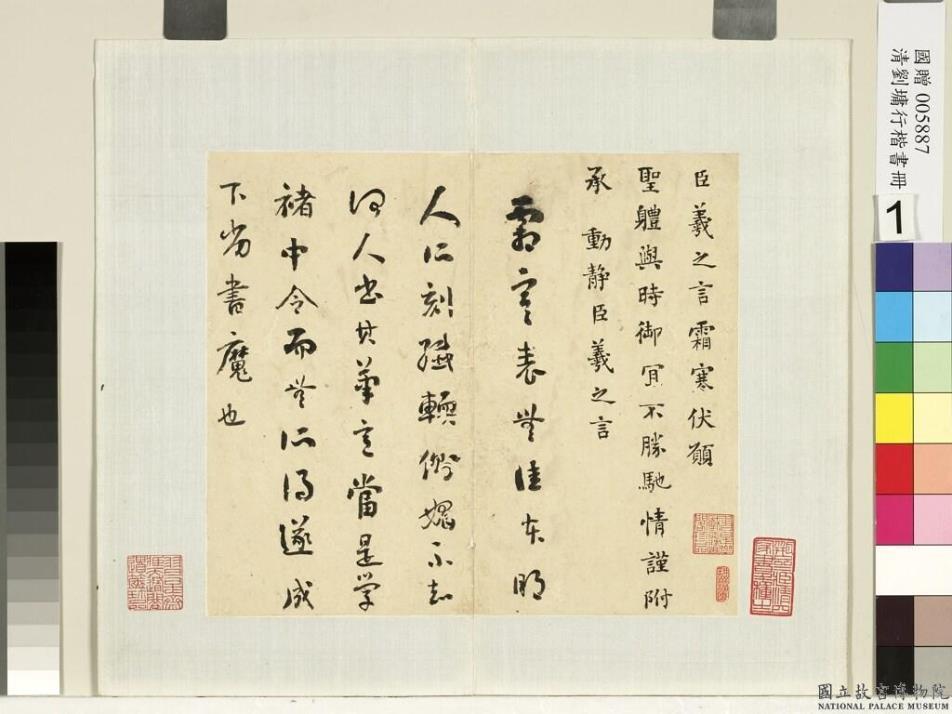 臣羲之言霜寒伏願
聖體與時御宜不勝馳情謹附
承動靜臣羲之言
霜寒表無佳本明
人所刻璢輭俗媚不知
何人書其筆意當是學
褚中令而無所得遂成
下劣書魔也
國贈 005887
清劉墉行楷書冊
1
國立故宮博物院
NATIONAL PALACE MUSEUM